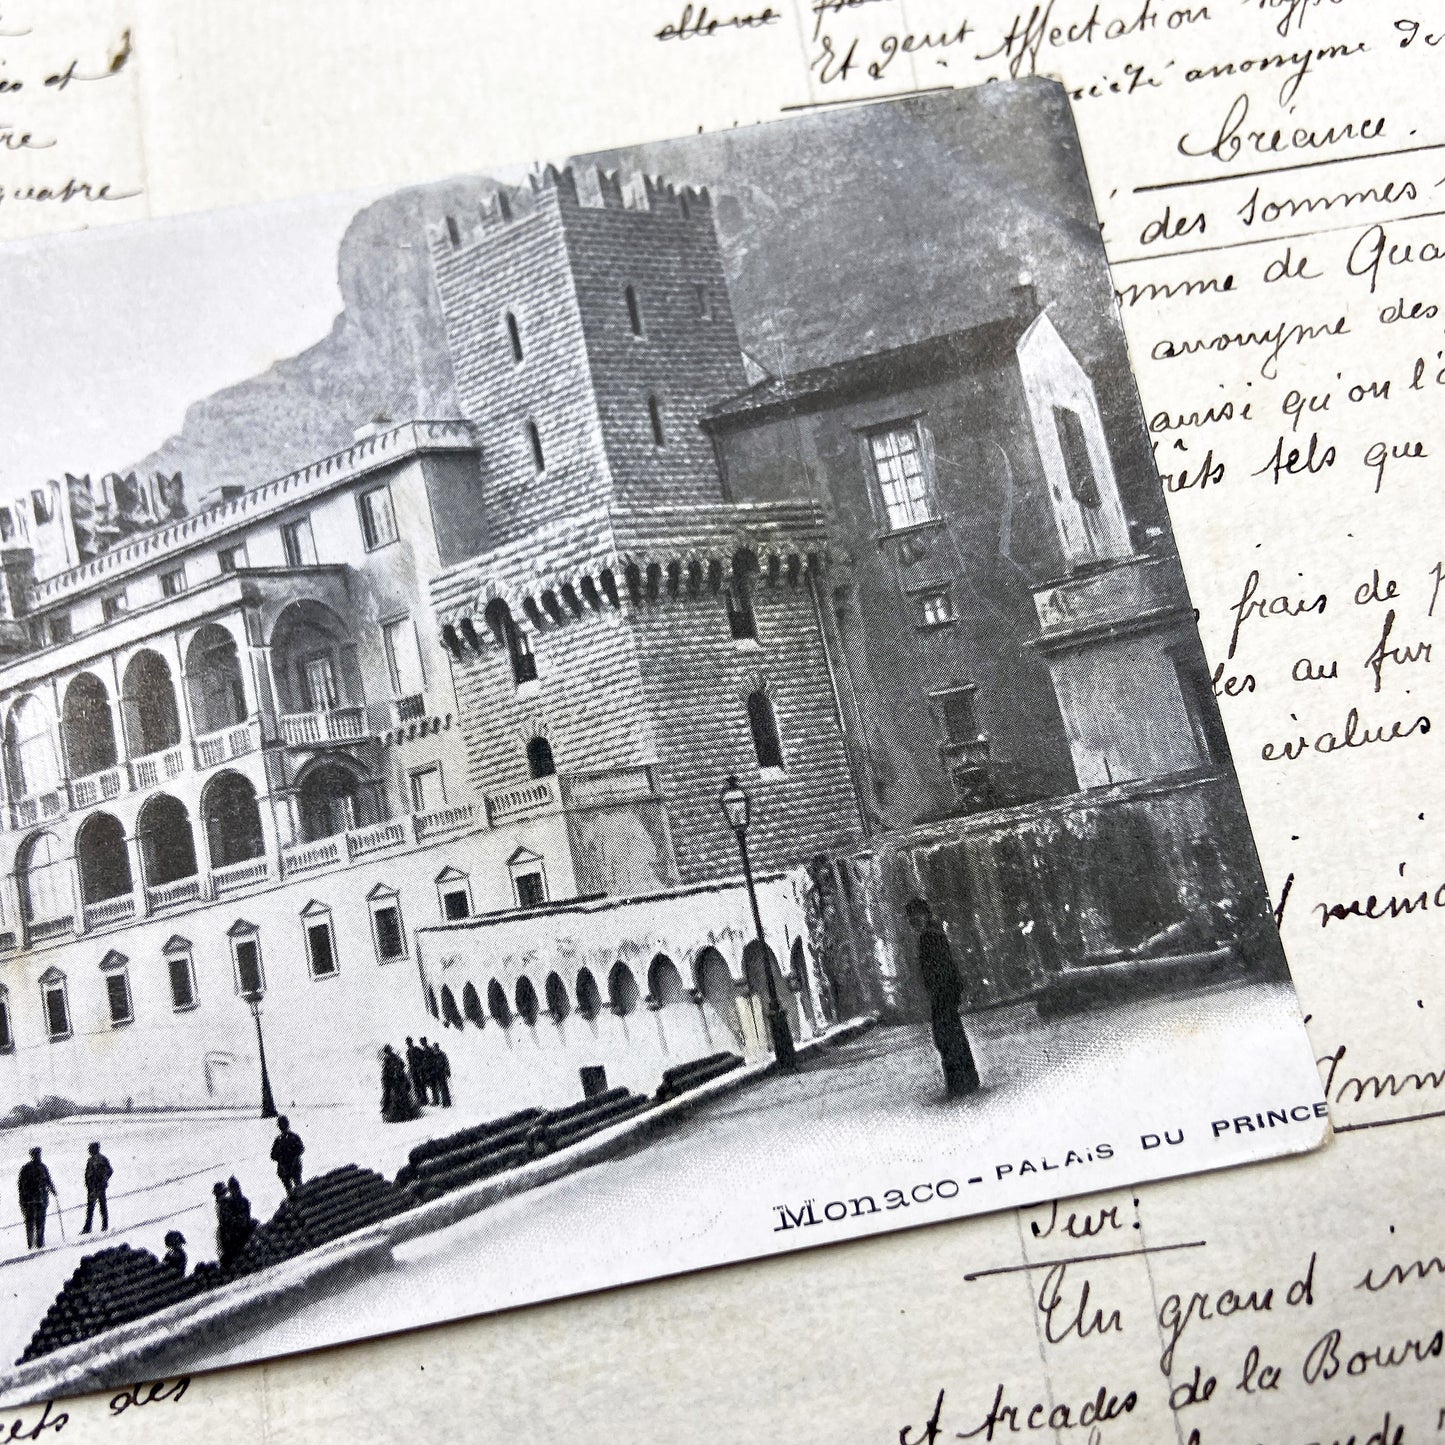 et
re
quatre
ellone
Et Gent Affectation
anonyme
Créance.
des sommes
omme de Qua
anonyme des
ainsi qu'on l'
rêts tels que
frais de p
les au fur
évalués
Monaco - PALAIS DU PRINCE
Imm
Sur:
Un grand im
et Arcades de la Bours
des